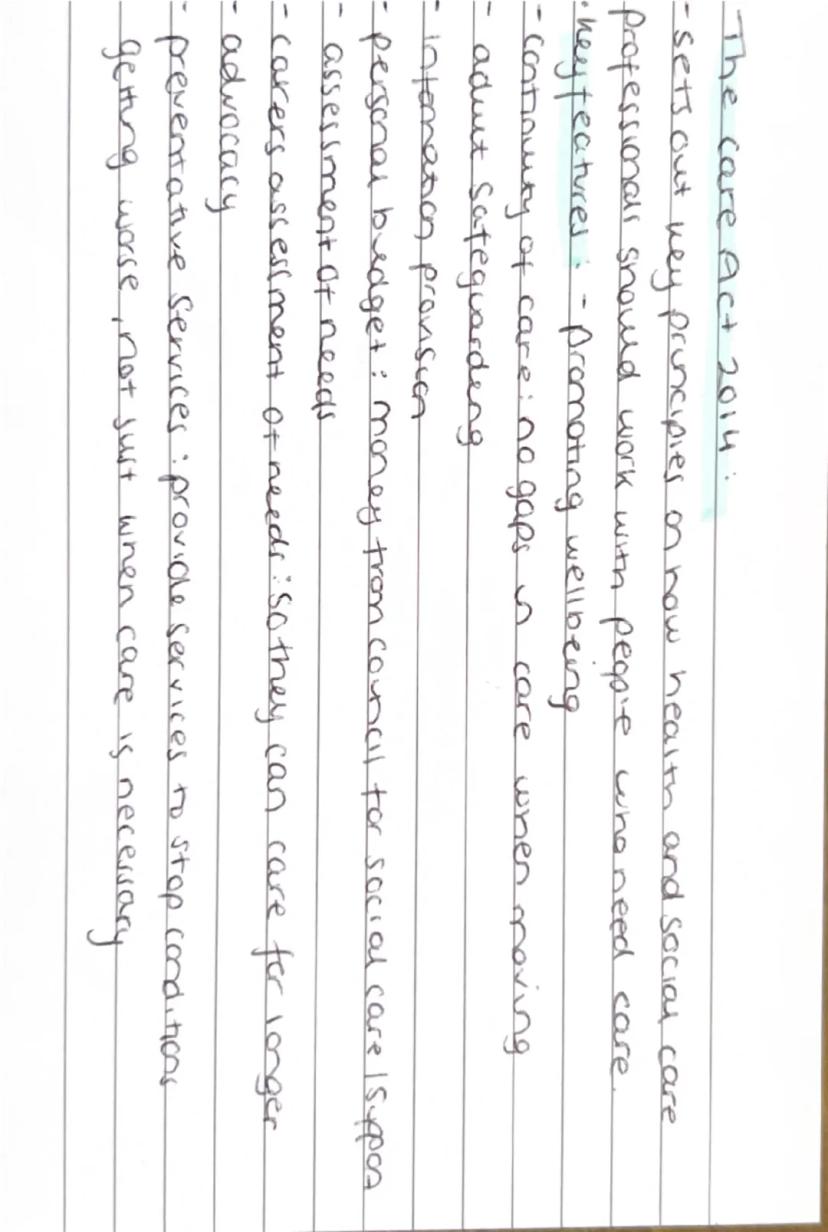 The care Act 2014:
- sets out key principles on how health and social care
professionals should work with people who need care.
· key features: - promoting wellbeing
- continuity of care: no gaps in care when moving
- adult safeguarding
- information provision
- personal budget: money from council for social care/support
- assessment of needs
- carers assessment of needs: so they can care for longer
- advocacy
- preventative services: provide services to stop conditions
getting worse, not just when care is necessary